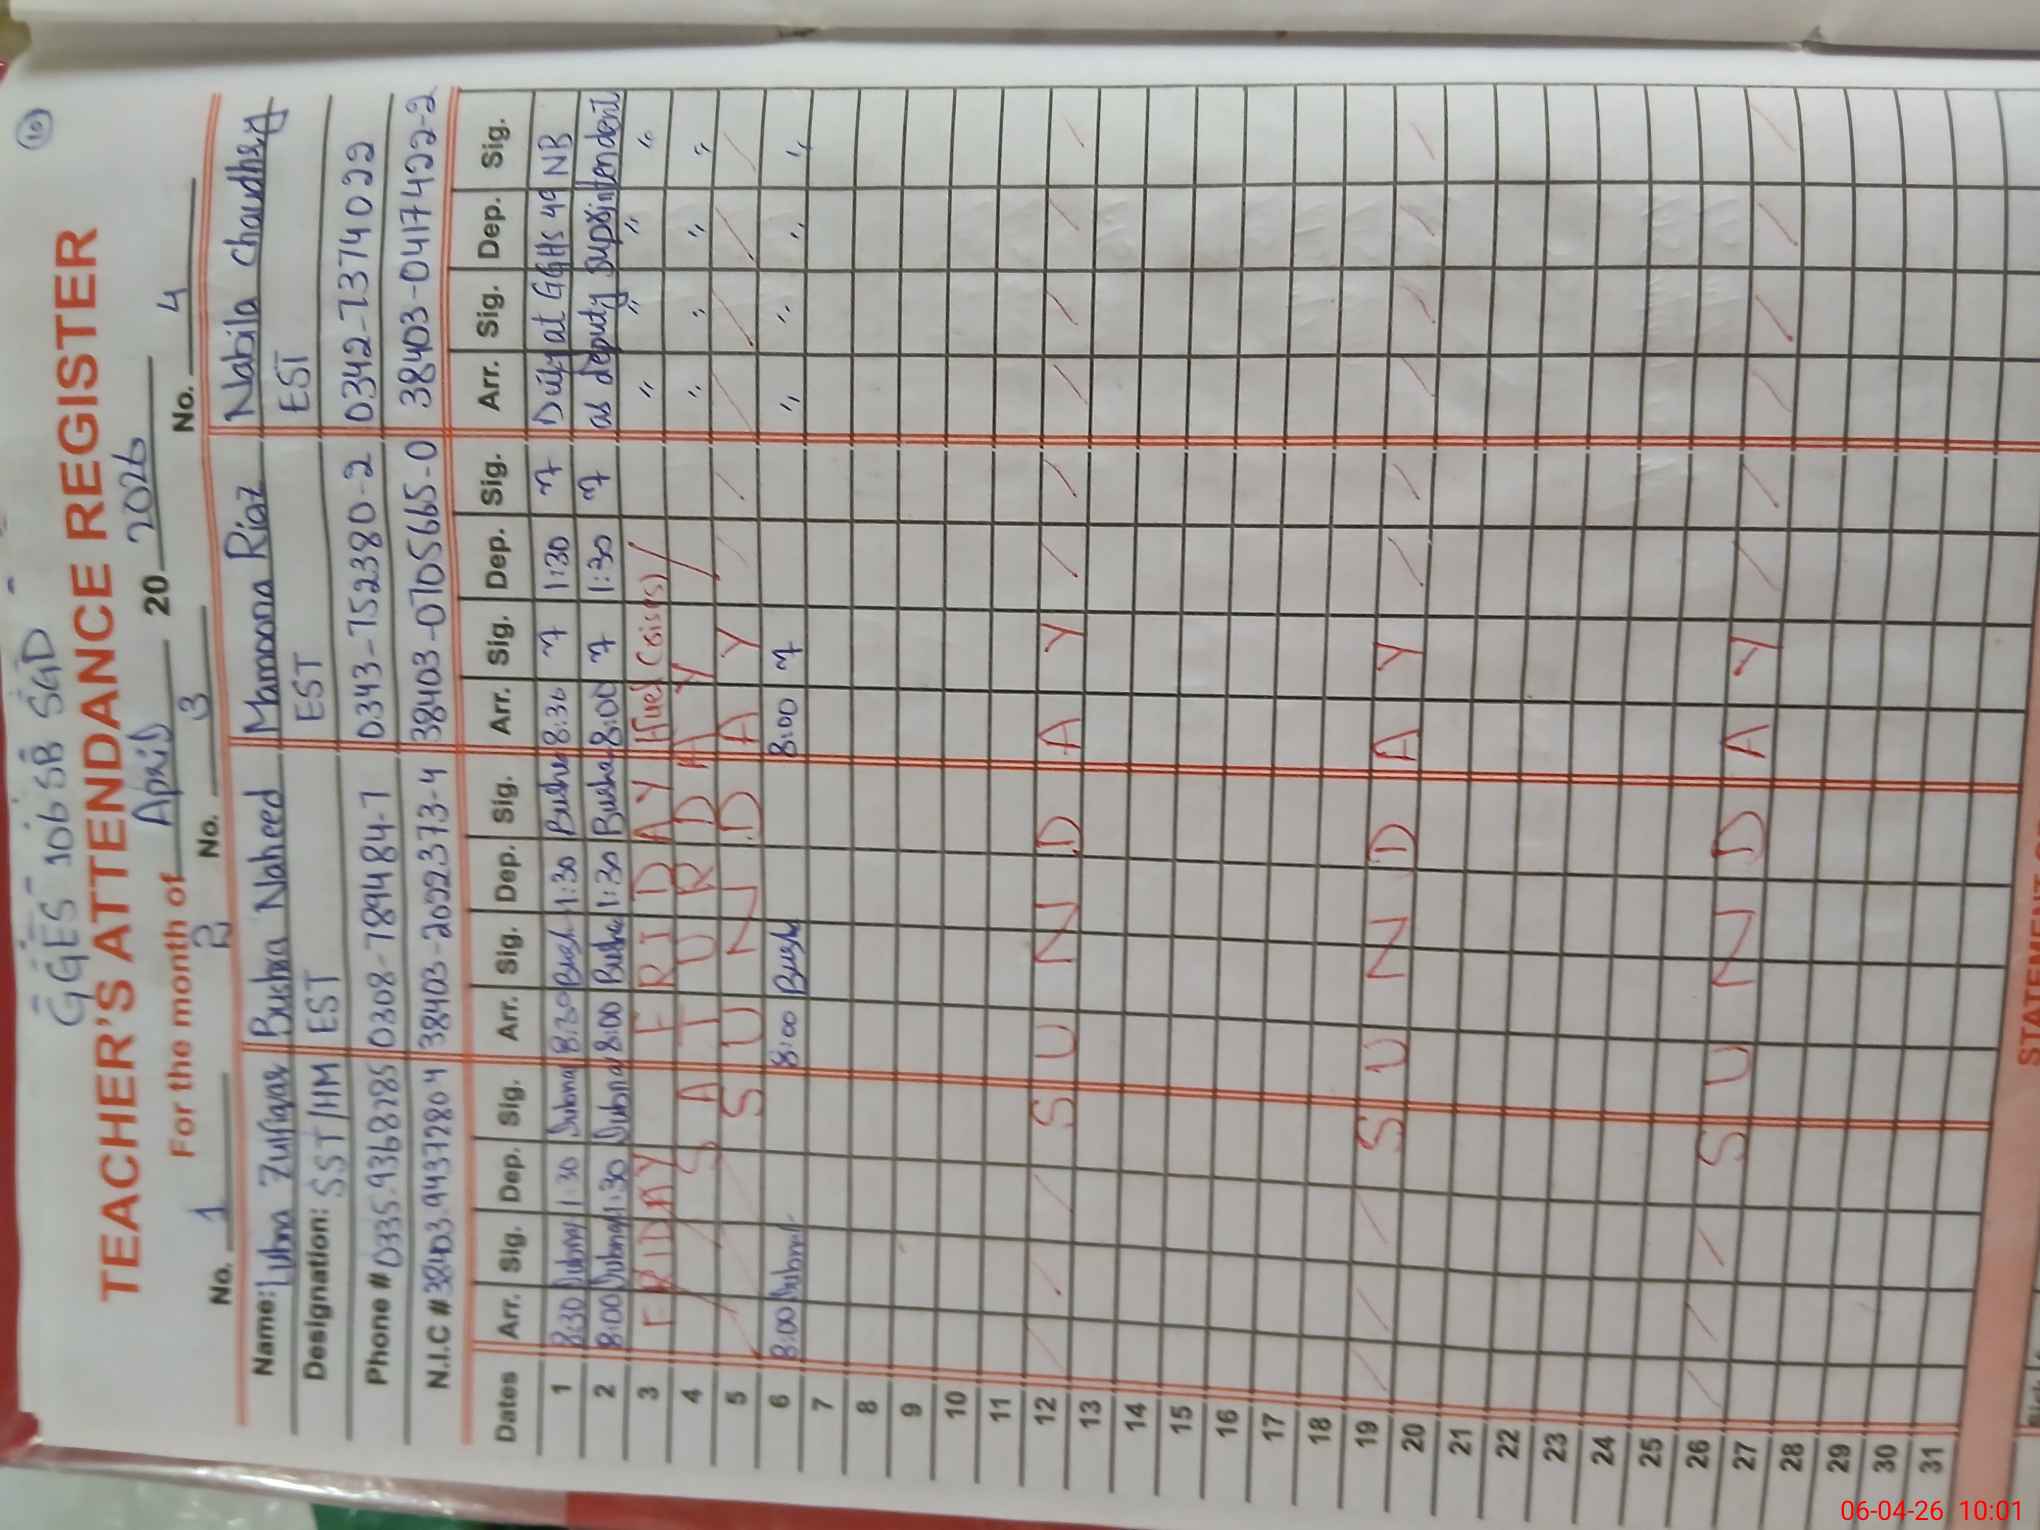 10
GGES 106 SB SGD
TEACHER'S ATTENDANCE REGISTER
For the month of April 20 2026
No. 1 2 No. 3 No. 4
Name: Lubna Zulfiqar Bushra Naheed Mamoona Riaz Nabila Chaudhery
Designation: SST/HM EST EST EST
Phone # 0335-9368285 0308-789484-7 0343-752380-2 0342-7374022
N.I.C # 38403-9437280 4 38403-2092373-4 38403-0705665-0 38403-0417422-2
Dates Arr. Sig. Dep. Sig. Arr. Sig. Dep. Sig. Arr. Sig. Dep. Sig. Arr. Sig. Dep. Sig.
1 8:30 Lubna 1:30 Lubna 8:30 Bush 1:30 Bushra 8:30 1:30 Duty at GGHS 49 NB
2 8:00 Lubna 1:30 Lubna 8:00 Bushra 1:30 Bushra 8:00 1:30 as deputy supsintendent
3 FRIDAY FRIDAY (Fuel Crises) " " " "
4 SATURDAY " " " "
5 SUNDAY
6 8:00 Lubna 8:00 Bushra 8:00 " " " "
7
8
9
10
11
12 SUNDAY
13
14
15
16
17
18
19 SUNDAY
20
21
22
23
24
25
26 SUNDAY
27
28
29
30
31
STATEMENT
06-04-26 10:01